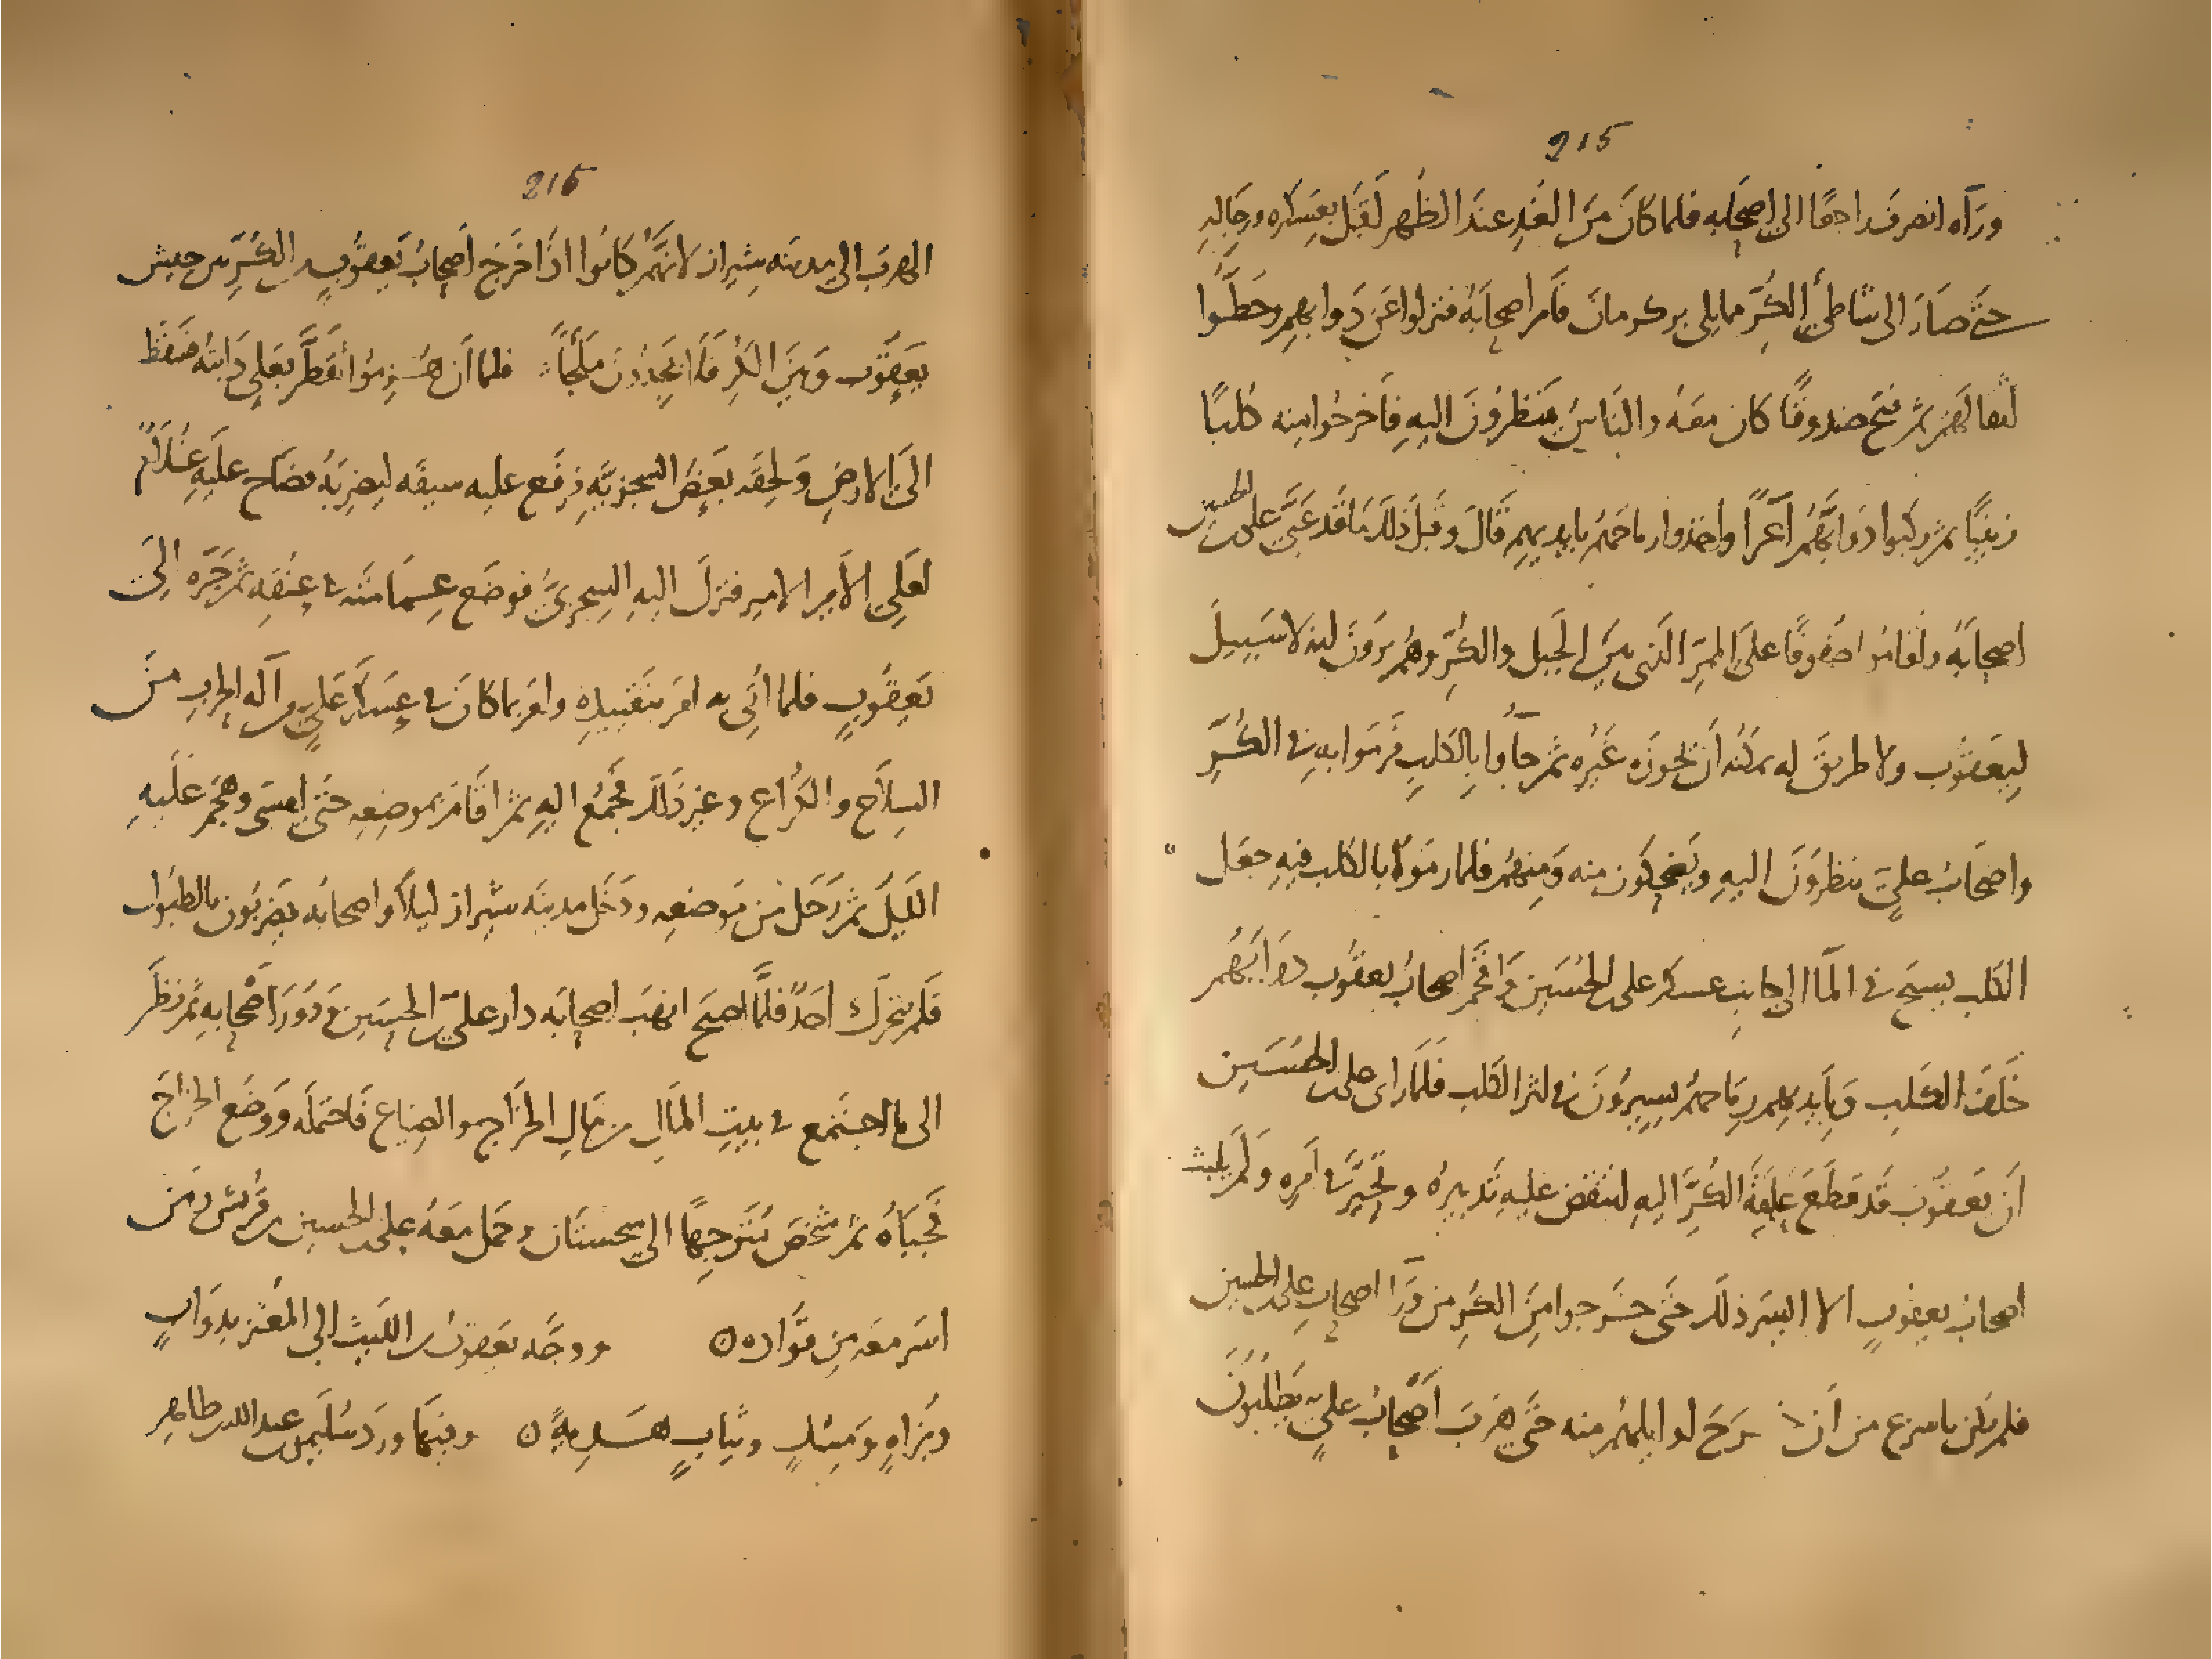 215
ورآه انصرف راجعًا الى اصحابه فلما كان من الغد عند الظهر اقبل بعسكره ورجاله
حتى صار الى شاطئ الكر مما يلى بر كرمان فامر اصحابه فنزلوا عن دوابهم وحطوا
اثقالهم ثم فتح صندوقًا كان معه والناس ينظرون اليه فاخرجوا منه كلبًا
ذئبيًا ثم ركبوا دوابهم اعرآ واخذوا رماحهم بايديهم قال وقبل ذلك ما قد عبى على بن الحسين
اصحابه واقاموا صفوفًا على الممر الذى بين الجبل والكر وهم يرون انه لا سبيل
ليعقوب ولا طريق له يمكنه ان يجوزه غيره ثم جآوا بالكلب فرموا به فى الكر
واصحاب على ينظرون اليه ويضحكون منه ومنهم فلما رموا بالكلب فيه جعل
الكلب يسبح فى المآ الى جانب عسكر على بن الحسين واقحم اصحاب يعقوب دوابهم
خلف الكلب وبايديهم رماحهم يسيرون فى اثر الكلب فلما راى على بن الحسين
ان يعقوب قد قطع عامة الكر اليه انتقض عليه تدبيره وتحير فى امره ولم يلبث
اصحاب يعقوب الا ايسر ذلك حتى خرجوا من الكر من ورآ اصحاب على بن الحسين
فلم يكن باسرع من ان خرج اوايلهم منه حتى هرب اصحاب على يطلبون
216
الهرب الى مدينه شيراز لانهم كانوا اذا خرج اصحاب يعقوب من الكر بين جيش
يعقوب وبين الكر فلا يجدون ملجأً فلما ان هزموا تقطر بعلى دابته فسقط
الى الارض ولحقه بعض السجزيه فرفع عليه سيفه ليضربه فصاح عليه غلام
لعلى الامير الامير فنزل اليه السجزى فوضع عمامته فى عنقه ثم جره الى
يعقوب فلما اتى به امر بتقييده وامر بما كان فى عسكر على من آله الحرب من
السلاح والكراع وغير ذلك فجمع اليه ثم اقام بموضعه حتى امسى وهجم عليه
الليل ثم رحل من موضعه ودخل مدينه شيراز ليلاً واصحابه يضربون بالطبول
فلم يتحرك احد فلما اصبح انهب اصحابه دار على بن الحسين ودور اصحابه ثم نظر
الى ما اجتمع فى بيت المال من مال الخراج والضياع فاحتمله ووضع الخراج
فجباه ثم شخص متوجهًا الى سجستان وحمل معه على بن الحسين بن قريش ومن
اسر معه من قواده ووجه يعقوب بن الليث الى المعتز بدواب
وبزاه ومسك وثياب هديةً وفيها ورد سليمن بن عبد الله بن طاهر